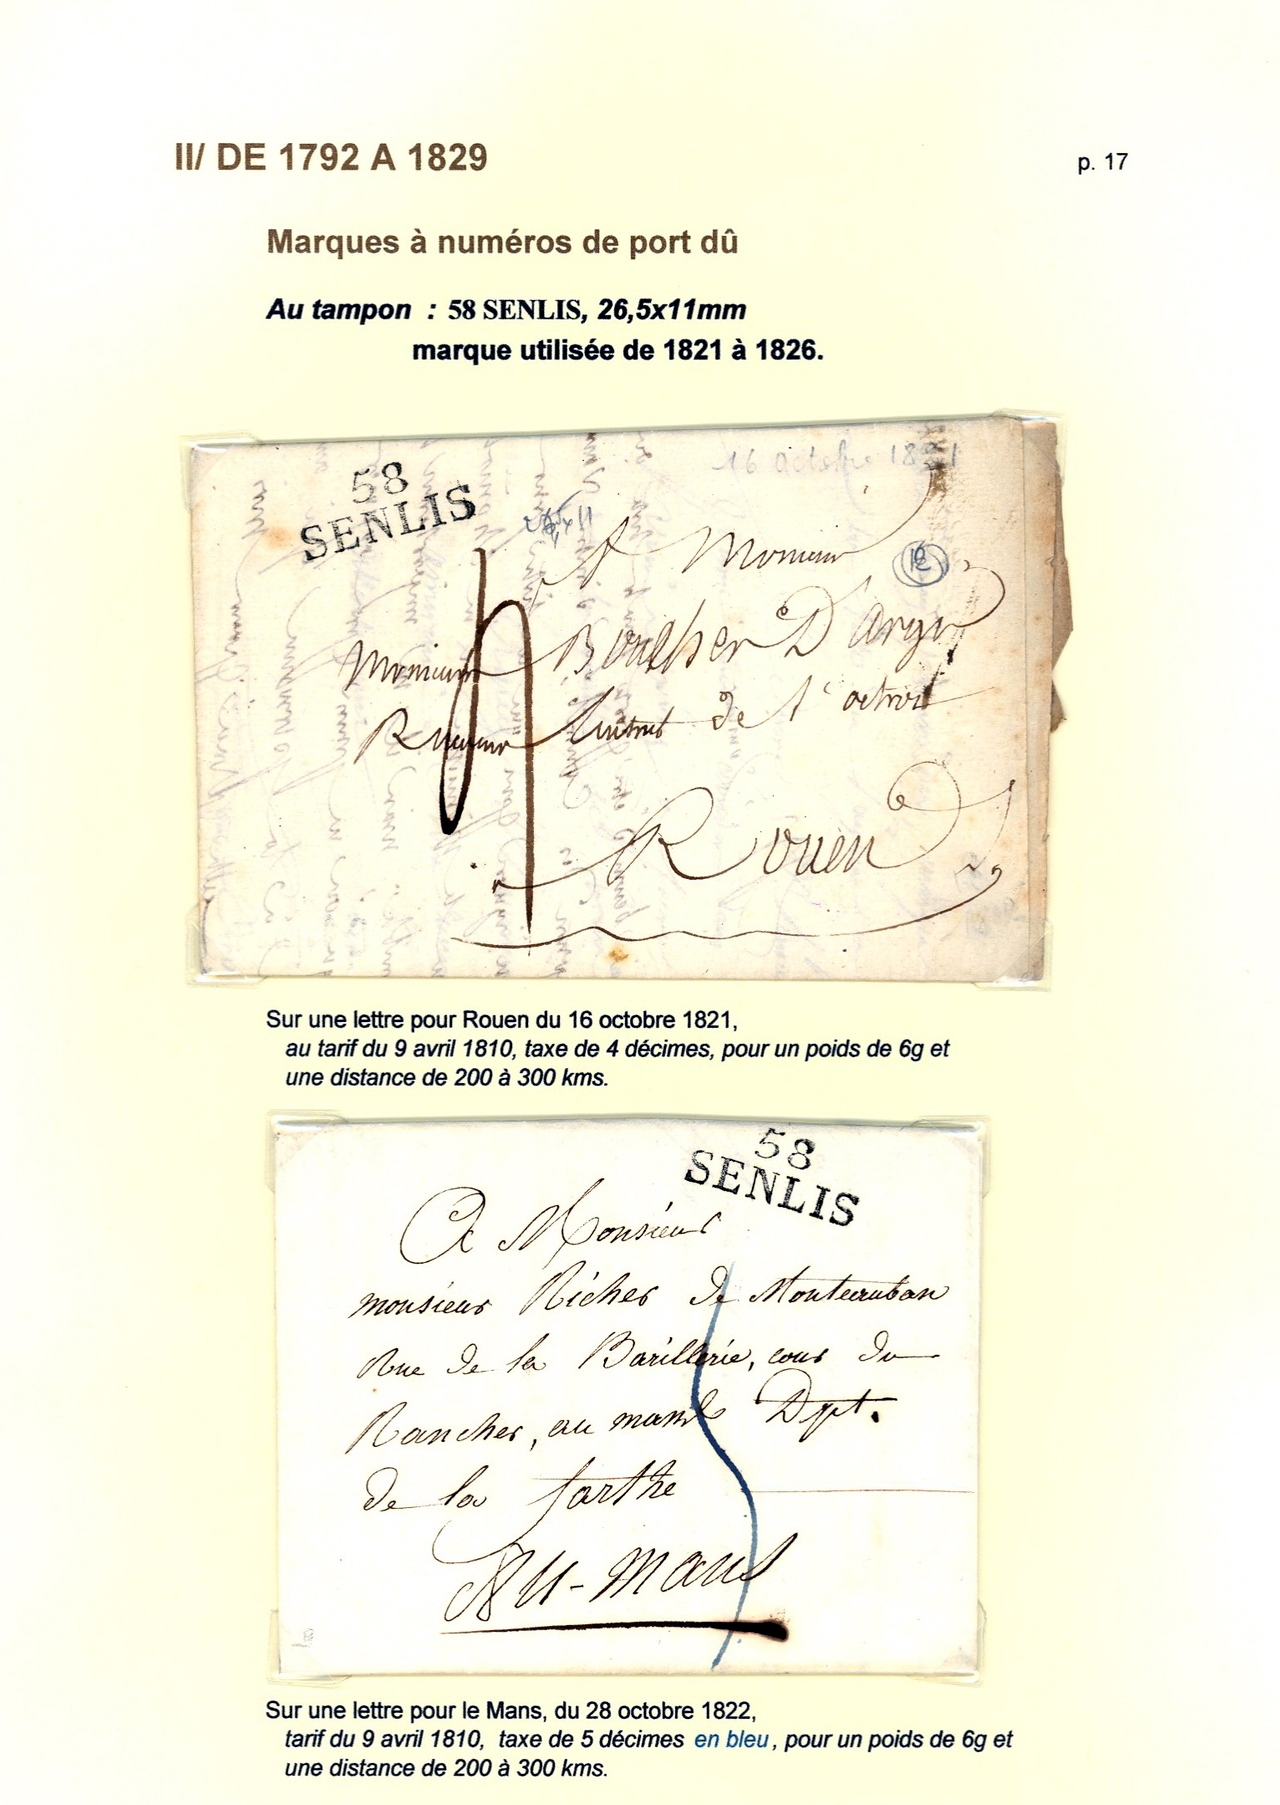 II/ DE 1792 A 1829
p. 17
Marques à numéros de port dû
Au tampon : 58 SENLIS, 26,5x11mm
marque utilisée de 1821 à 1826.
16 octobre 1821
58
SENLIS
A Monsieur
12
Monsieur Boulher D'argu
Receveur de l'octroi
4
a Rouen
Sur une lettre pour Rouen du 16 octobre 1821,
au tarif du 9 avril 1810, taxe de 4 décimes, pour un poids de 6g et
une distance de 200 à 300 kms.
58
SENLIS
A Monsieur
monsieur Richer de Montauban
Rue de la Barillerie, cour du
Rancher, au mans Dpt.
de la sarthe
5
Au-mans
Sur une lettre pour le Mans, du 28 octobre 1822,
tarif du 9 avril 1810, taxe de 5 décimes en bleu, pour un poids de 6g et
une distance de 200 à 300 kms.